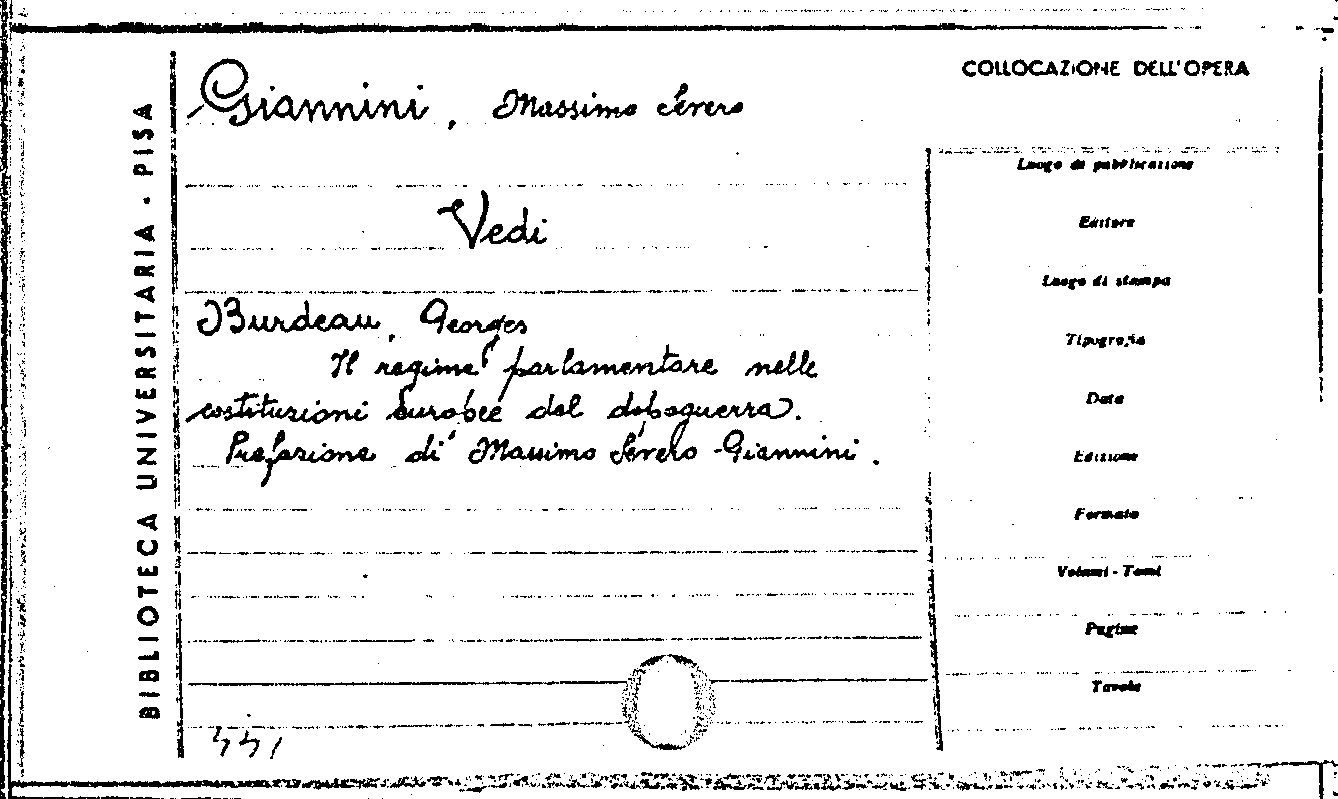 COLLOCAZIONE DELL'OPERA
BIBLIOTECA UNIVERSITARIA - PISA
Giannini, Massimo Severo
Vedi
Burdeau, Georges
Il regime parlamentare nelle
costituzioni europee del dopoguerra.
Prefazione di Massimo Severo Giannini.
Luogo di pubblicazione
Editore
Luogo di stampa
Tipografia
Data
Edizione
Formato
Volumi - Tomi
Pagine
Tavole